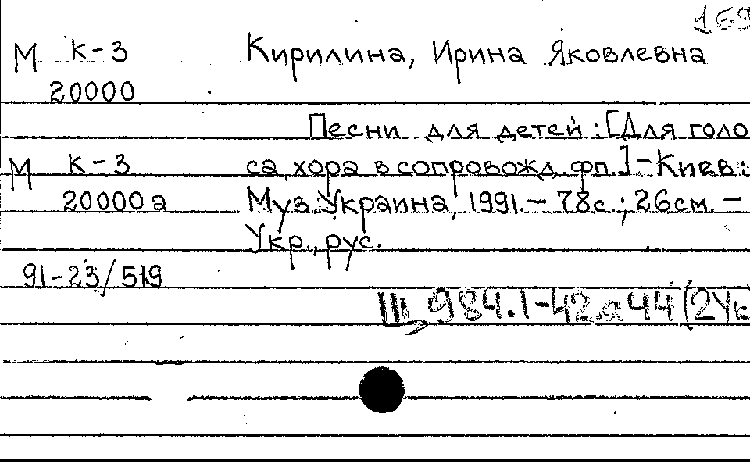 169
М К-3 Кирилина, Ирина Яковлевна
20000
Песни для детей: [Для голо
М К-3 са, хора в сопровожд. фп.] - Киев:
20000а Муз. Україна, 1991. - 78с.; 26см. -
Укр., рус.
91-23/519
Щ 984.1-42я44(2Ук